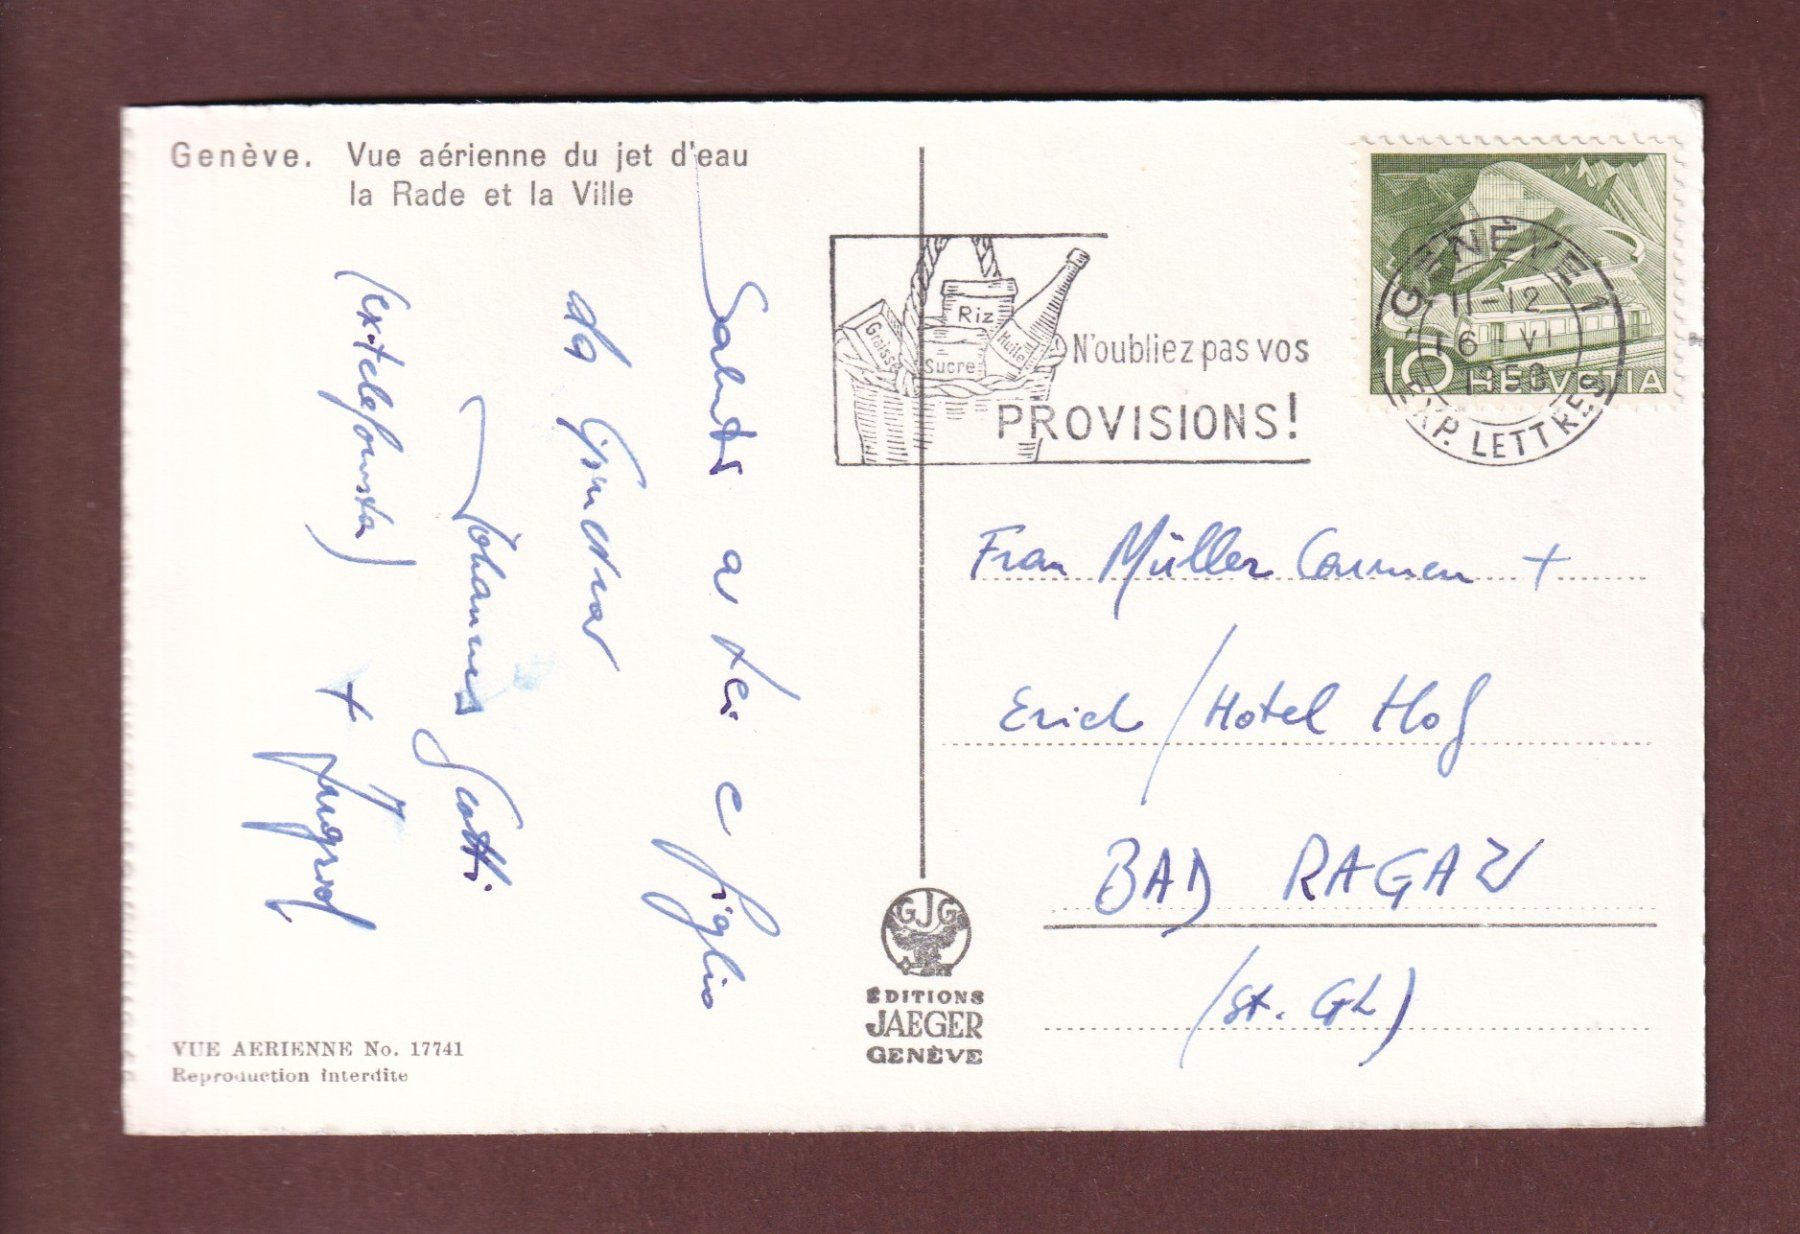 Genève. Vue aérienne du jet d'eau
la Rade et la Ville
Saluti a tei e figlio
da
Johannes Scotti
(extelefonista)
+
VUE AERIENNE No. 17741
Reproduction interdite
Graisse
Riz
Sucre
Huile
N'oubliez pas vos
PROVISIONS!
GENÈVE 1
11-12
6. VI
1958
EXP. LETTRES
10 HELVETIA
Frau Müller Carmen +
Erich / Hotel Hof
BAD RAGAZ
(St. GL)
GJG
ÉDITIONS
JAEGER
GENÈVE